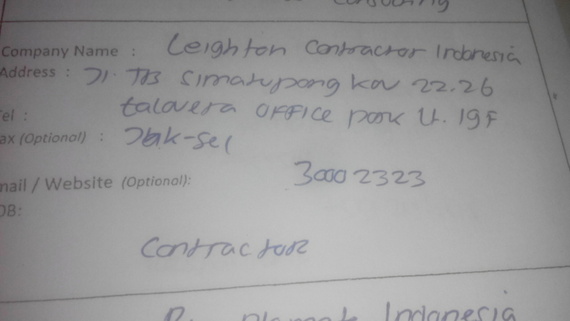 Consulting
Company Name : Leighton Contractor Indonesia
Address : Jl. TB Simatupang Kav 22.26
Tel : talavera OFFICE park Lt. 19F
ax (Optional) : Jak-Sel
mail / Website (Optional): 30002323
OB:
Contractor
Indonesia